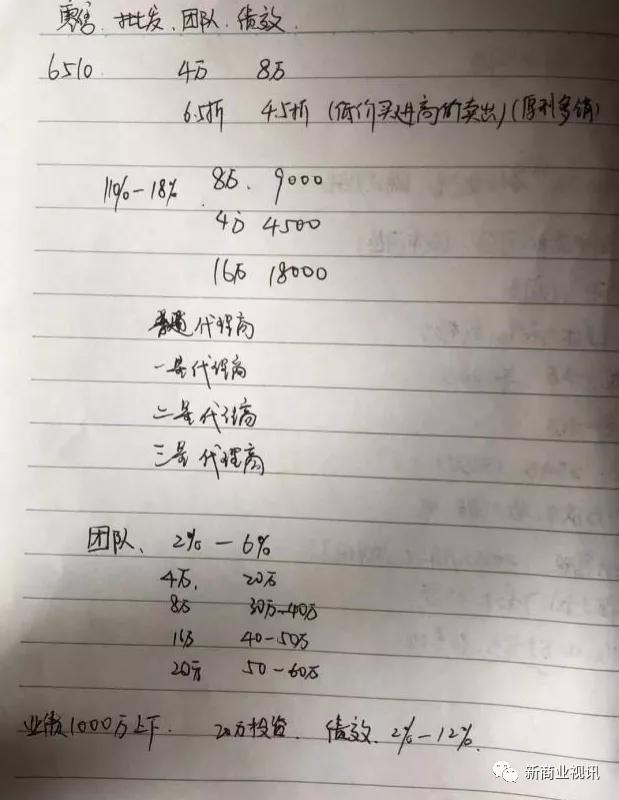 零售、批发、团队、绩效
6510 4万 8万
6.5折 4.5折 (低价买进高价卖出)(厚利多销)
11%-18% 8万、9000
4万 4500
16万 18000
普通代理商
一星代理商
二星代理商
三星代理商
团队、2%-6%
4万、20万
8万 30万-40万
16万 40-50万
20万 50-60万
业绩1000万上下. 20万投资、绩效、2%-12%、
新商业视讯